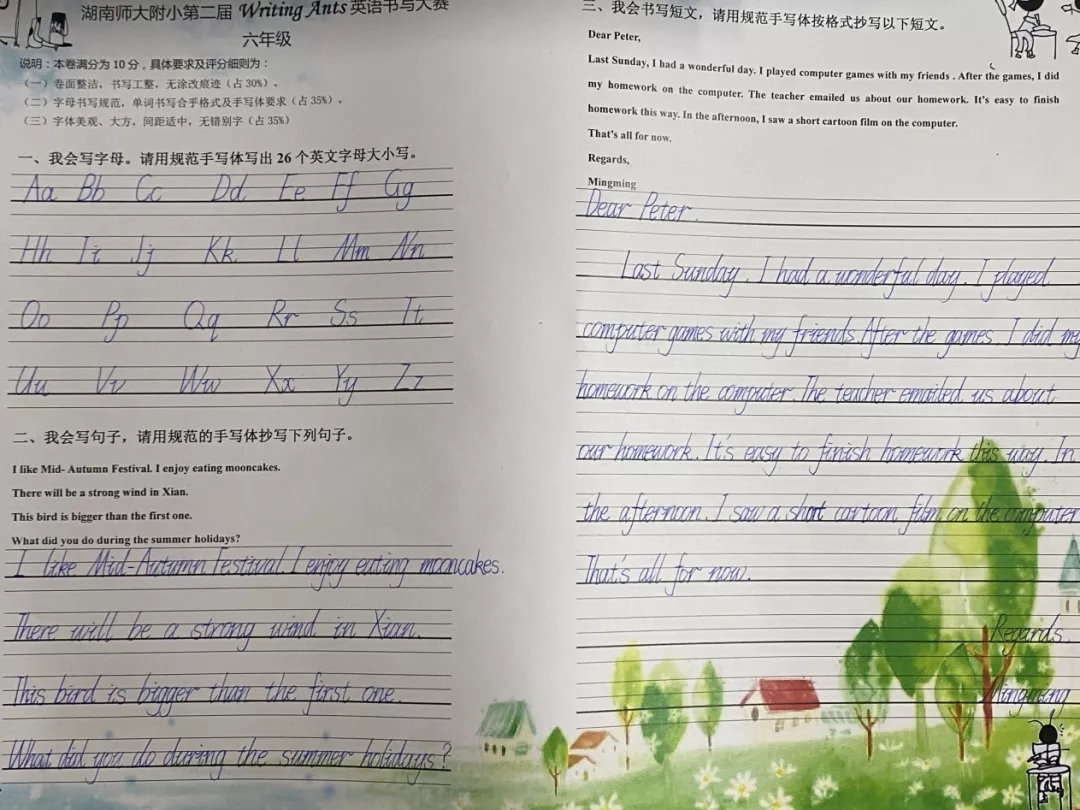 湖南师大附小第二届 Writing Ants 英语书写大赛
六年级
说明：本卷满分为 10 分，具体要求及评分细则为：
（一）卷面整洁，书写工整，无涂改痕迹（占 30%）。
（二）字母书写规范，单词书写合乎格式及手写体要求（占 35%）。
（三）字体美观、大方，间距适中，无错别字（占 35%）
一、我会写字母。请用规范手写体写出 26 个英文字母大小写。
Aa Bb Cc Dd Ee Ff Gg
Hh Ii Jj Kk Ll Mm Nn
Oo Pp Qq Rr Ss Tt
Uu Vv Ww Xx Yy Zz
二、我会写句子，请用规范的手写体抄写下列句子。
I like Mid- Autumn Festival. I enjoy eating mooncakes.
There will be a strong wind in Xian.
This bird is bigger than the first one.
What did you do during the summer holidays?
I like Mid-Autumn Festival. I enjoy eating mooncakes.
There will be a strong wind in Xian.
This bird is bigger than the first one.
What did you do during the summer holidays?
三、我会书写短文，请用规范手写体按格式抄写以下短文。
Dear Peter,
Last Sunday, I had a wonderful day. I played computer games with my friends . After the games, I did
my homework on the computer. The teacher emailed us about our homework. It's easy to finish
homework this way. In the afternoon, I saw a short cartoon film on the computer.
That's all for now.
Regards,
Mingming
Dear Peter,
Last Sunday, I had a wonderful day. I played
computer games with my friends. After the games, I did my
homework on the computer. The teacher emailed us about
our homework. It's easy to finish homework this way. In
the afternoon, I saw a short cartoon film on the computer
That's all for now.
Regards,
Mingming